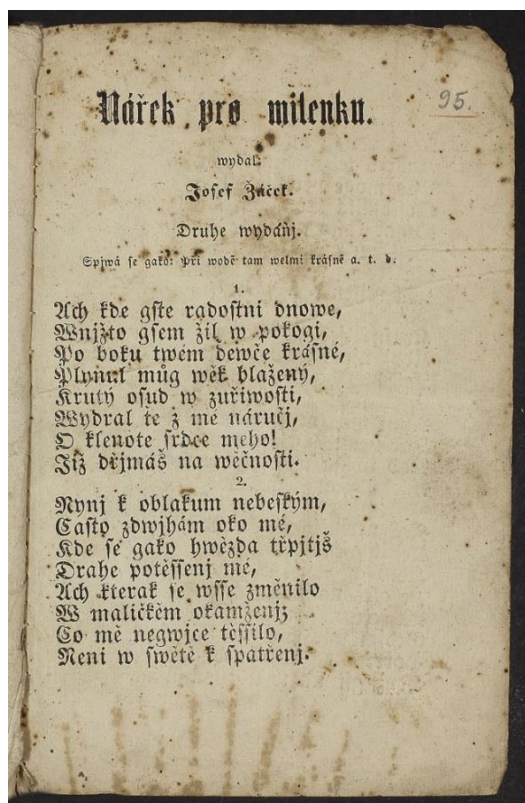 Nářek pro milenku.
95.
wydal:
Josef Žáček.
Druhe wydánj.
Spjwá se gako: Při wodě tam welmi krásně a. t. d.
1.
Ach kde gste radostni dnowe,
Wnjžto gsem žil w pokogi,
Po boku twém dewče krásné,
Plynul můg wěk blažený,
Krutý osud w zuřiwosti,
Wydral te z mé náručj,
O klenote srdce meho!
Již dřjmáš na wěčnosti.
2.
Nynj k oblakum nebeským,
Casto zdwjhám oko mé,
Kde se gako hwězda třpjtjš
Drahe potěssenj mé,
Ach kterak se wsse změnilo
W maličkém okamženjz
Co mě negwjce těssilo,
Neni w swětě k spatřenj.